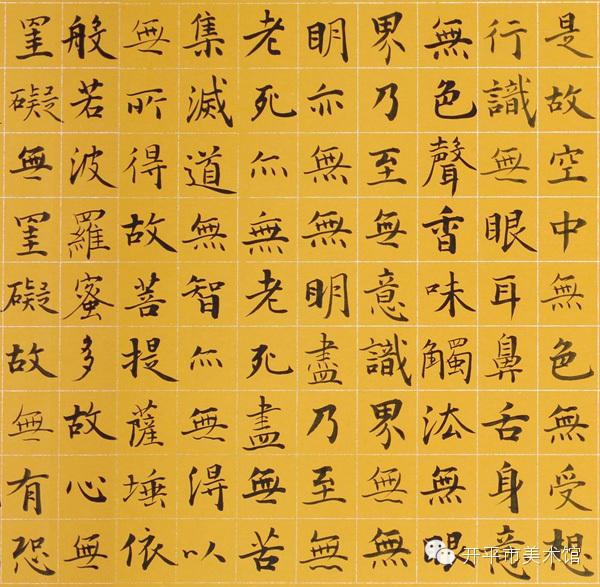 是故空中無色無受想
行識無眼耳鼻舌身意
無色聲香味觸法無眼
界乃至無意識界無無
明亦無無明盡乃至無
老死亦無老死盡無苦
集滅道無智亦無得以
無所得故菩提薩埵依
般若波羅蜜多故心無
罣礙無罣礙故無有恐
开平市美术馆